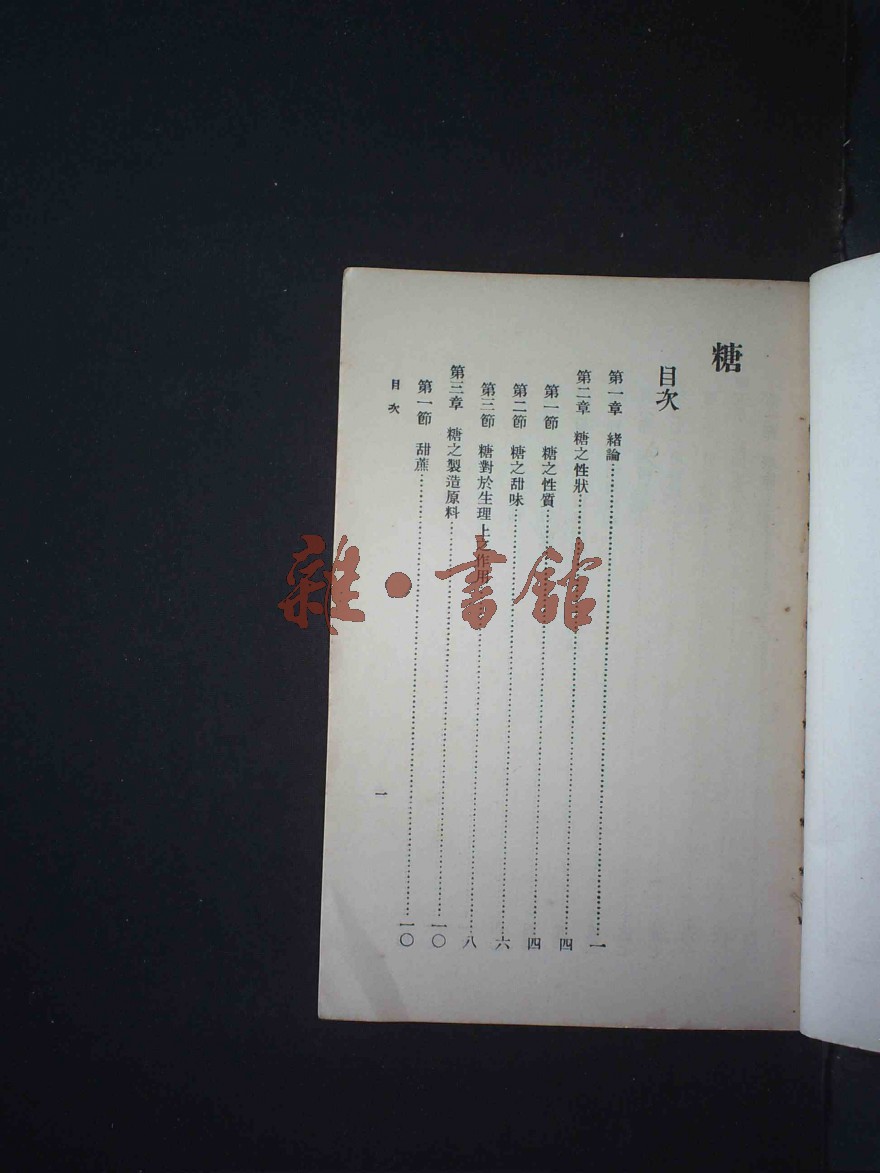 糖
目次
第一章 緒論……一
第二章 糖之性狀……四
第一節 糖之性質……四
第二節 糖之甜味……六
第三節 糖對於生理上之作用……八
第三章 糖之製造原料……一〇
第一節 甜蔗……一〇
目次
一
雜·書館